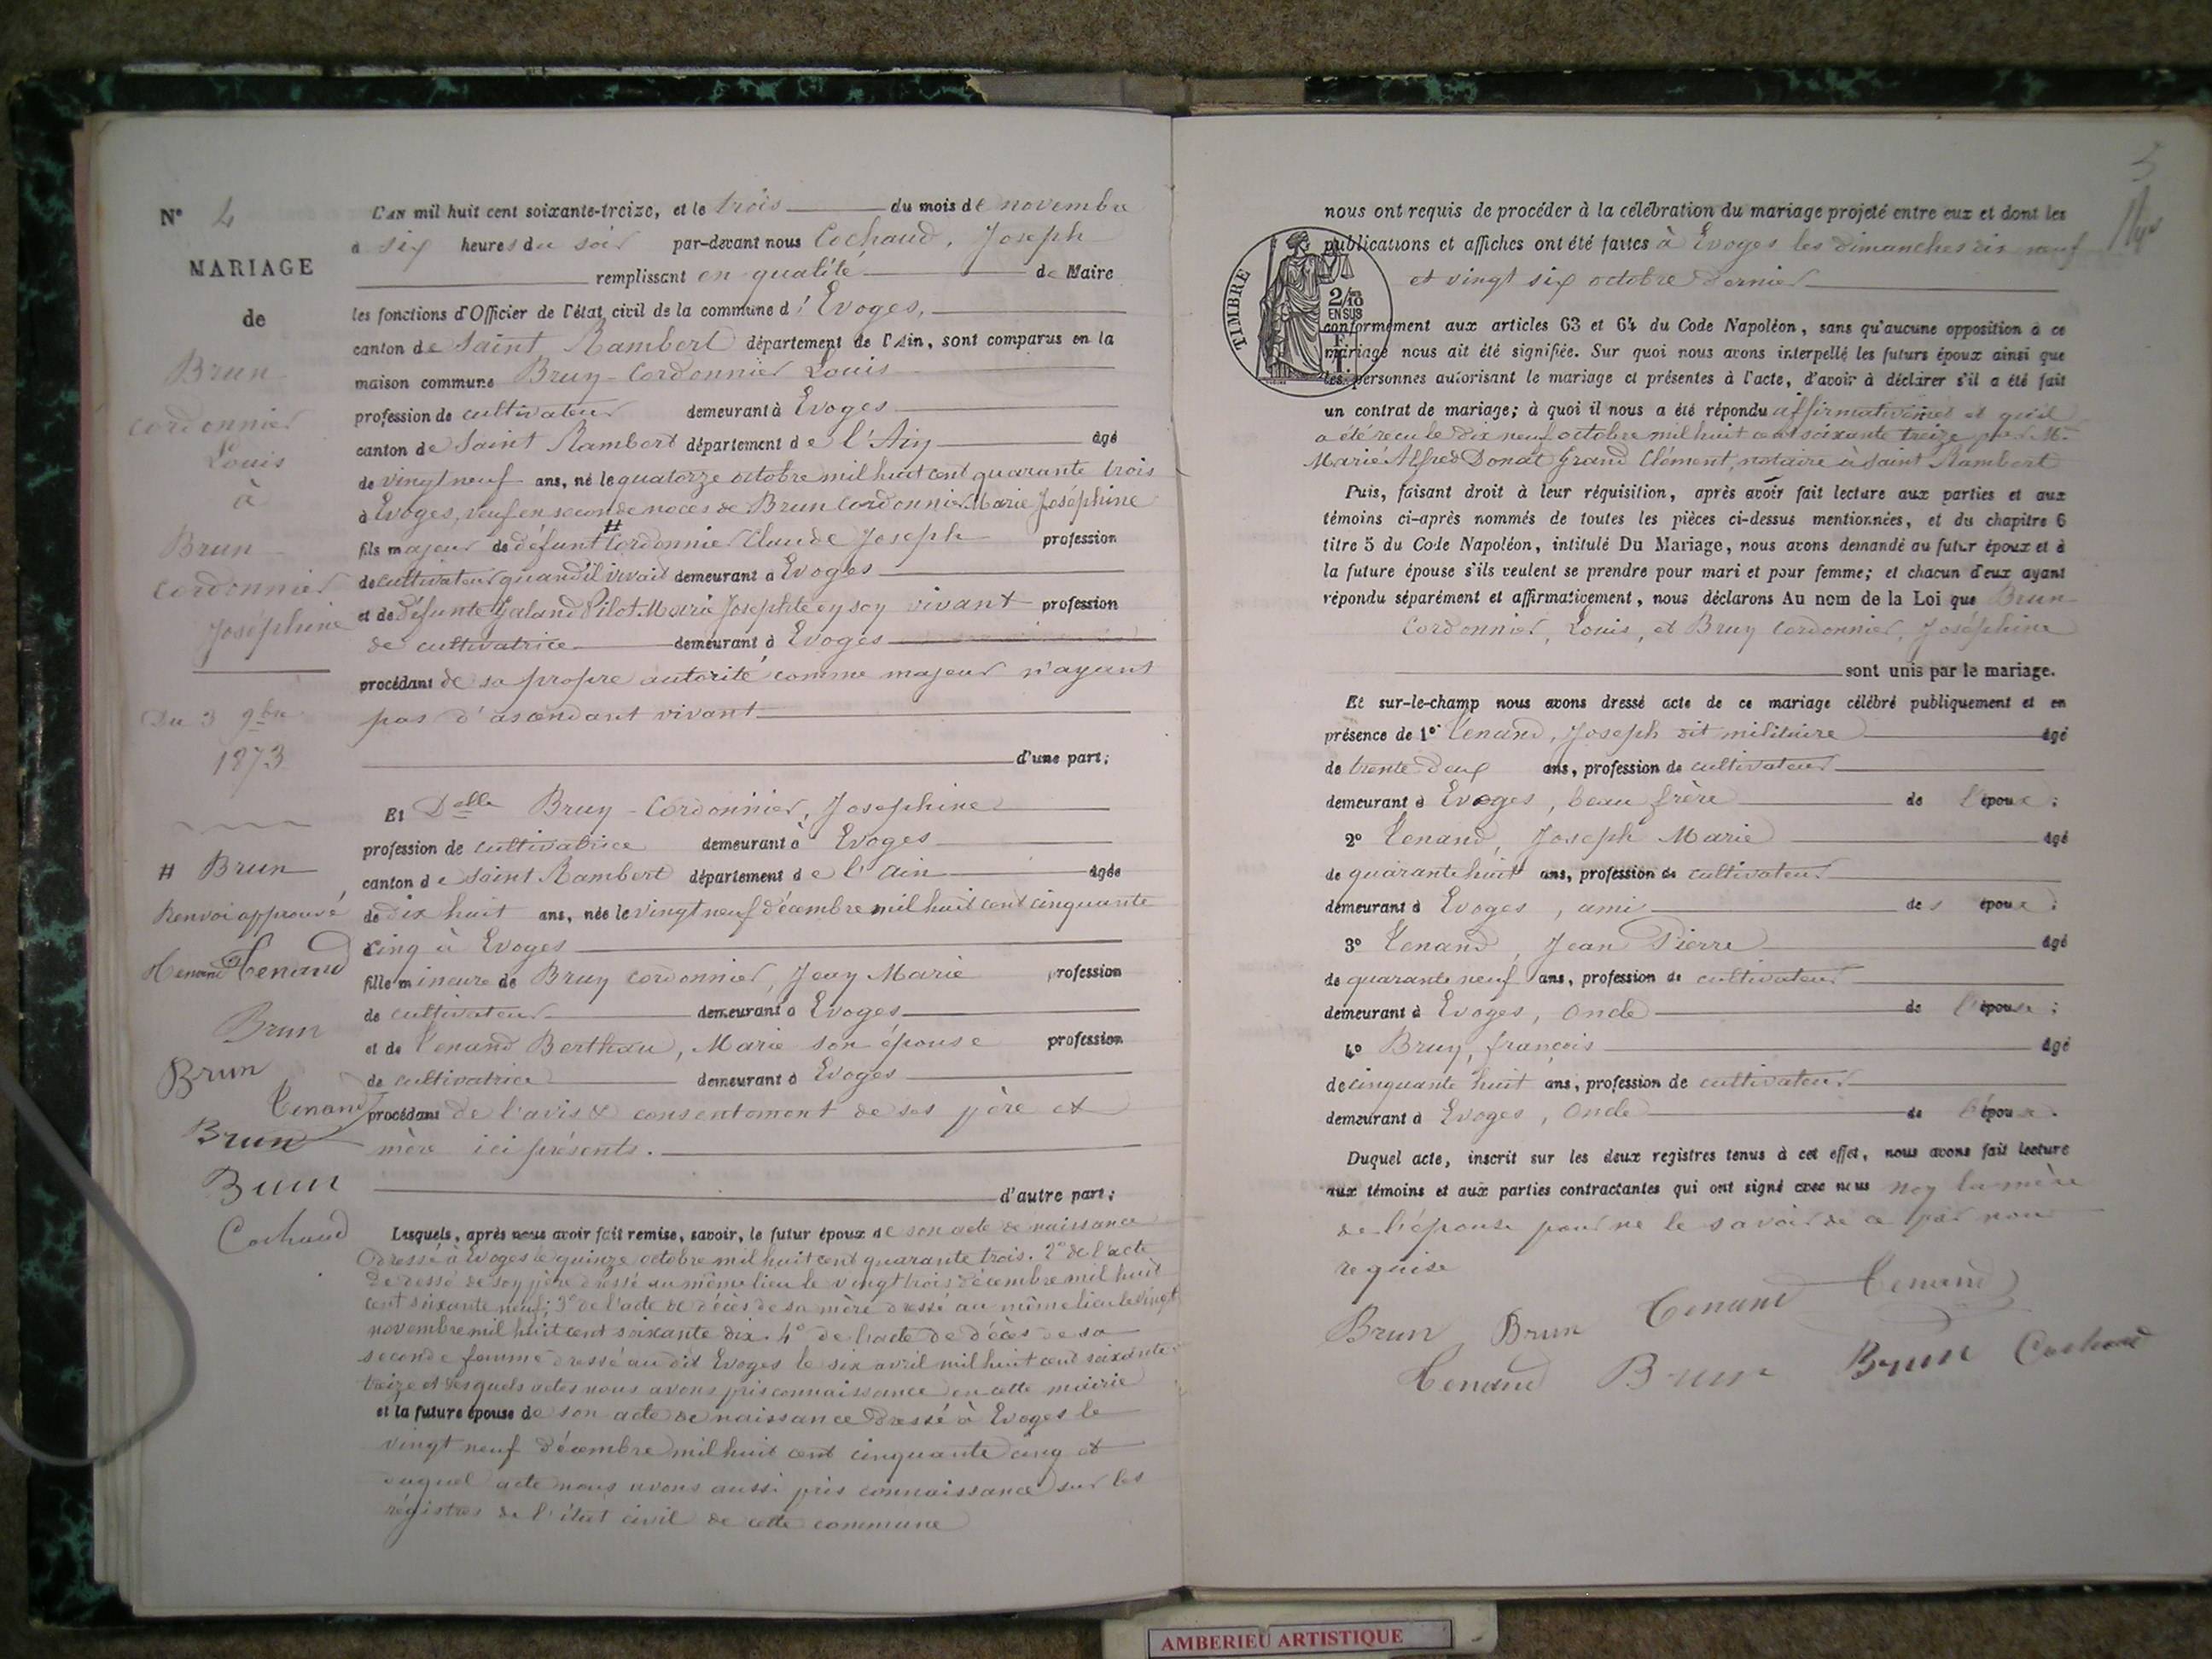 N° 4
MARIAGE
de
Brun
Cordonnier
Louis
à
Brun
Cordonnier
Joséphine
Du 3 9bre
1873
# Brun
Renvoi approuvé
Tenand
Brun
Brun
Tenand
Brun
Brun
Cochaud
L'AN mil huit cent soixante-treize, et le trois du mois de novembre
à six heures du soir par-devant nous Cochaud, Joseph
remplissant en qualité de Maire
les fonctions d'Officier de l'état civil de la commune d'Evoges,
canton de Saint Rambert département de l'Ain, sont comparus en la
maison commune Brun-Cordonnier Louis
profession de cultivateur demeurant à Evoges
canton de Saint Rambert département de l'Ain âgé
de vingt neuf ans, né le quatorze octobre mil huit cent quarante trois
à Evoges, veuf en seconde noces de Brun Cordonnier Marie Joséphine
fils majeur de défunt # Cordonnier Claude Joseph profession
de cultivateur quand il vivait demeurant à Evoges
et de défunte Galand Pilot Marie Josephte en son vivant profession
de cultivatrice demeurant à Evoges
procédant de sa propre autorité comme majeur n'ayant
pas d'ascendant vivant
d'une part;
Et Delle Brun-Cordonnier, Josephine
profession de cultivatrice demeurant à Evoges
canton de Saint Rambert département de l'Ain âgée
de dix huit ans, née le vingt neuf décembre mil huit cent cinquante
cinq à Evoges
fille mineure de Brun Cordonnier, Jean Marie profession
de cultivateur demeurant à Evoges
et de Tenand Berthau, Marie son épouse profession
de cultivatrice demeurant à Evoges
procédant de l'avis & consentement de ses père et
mère ici présents.
d'autre part;
Lesquels, après nous avoir fait remise, savoir, le futur époux de son acte de naissance
dressé à Evoges le quinze octobre mil huit cent quarante trois. 2° de l'acte
de décès de son père dressé au même lieu le vingt trois décembre mil huit
cent soixante neuf; 3° de l'acte de décès de sa mère dressé au même lieu le vingt
novembre mil huit cent soixante dix. 4° de l'acte de décès de sa
seconde femme dressé au dit Evoges le six avril mil huit cent soixante
treize et desquels actes nous avons pris connaissance en cette mairie
et la future épouse de son acte de naissance dressé à Evoges le
vingt neuf décembre mil huit cent cinquante cinq et
duquel acte nous avons aussi pris connaissance sur les
régistres de l'état civil de cette commune
5
nous ont requis de procéder à la célébration du mariage projeté entre eux et dont les
publications et affiches ont été faites à Evoges les dimanches dix neuf
et vingt six octobre dernier
TIMBRE
2/10
EN SUS
conformément aux articles 63 et 64 du Code Napoléon, sans qu'aucune opposition à ce
mariage nous ait été signifiée. Sur quoi nous avons interpellé les futurs époux ainsi que
les personnes autorisant le mariage et présentes à l'acte, d'avoir à déclarer s'il a été fait
un contrat de mariage; à quoi il nous a été répondu affirmativement et qu'il
a été reçu le dix neuf octobre mil huit cent soixante treize par Me
Marie Alfred Donat Grand Clément, notaire à Saint Rambert
Puis, faisant droit à leur réquisition, après avoir fait lecture aux parties et aux
témoins ci-après nommés de toutes les pièces ci-dessus mentionnées, et du chapitre 6
titre 5 du Code Napoléon, intitulé Du Mariage, nous avons demandé au futur époux et à
la future épouse s'ils veulent se prendre pour mari et pour femme; et chacun d'eux ayant
répondu séparément et affirmativement, nous déclarons Au nom de la Loi que Brun
Cordonnier, Louis, et Brun Cordonnier, Joséphine
sont unis par le mariage.
Et sur-le-champ nous avons dressé acte de ce mariage célébré publiquement et en
présence de 1° Tenand, Joseph dit militaire âgé
de trente deux ans, profession de cultivateur
demeurant à Evoges, beau frère de l'époux;
2° Tenand, Joseph Marie âgé
de quarante huit ans, profession de cultivateur
demeurant à Evoges, ami des époux;
3° Tenand, Jean Pierre âgé
de quarante neuf ans, profession de cultivateur
demeurant à Evoges, Oncle de l'épouse;
4° Brun, françois âgé
de cinquante huit ans, profession de cultivateur
demeurant à Evoges, Oncle de l'époux.
Duquel acte, inscrit sur les deux registres tenus à cet effet, nous avons fait lecture
aux témoins et aux parties contractantes qui ont signé avec nous non la mère
de l'épouse pour ne le savoir de ce par nous
requise
Brun Brun Tenand Tenand
Tenand Brun Brun Cochaud
AMBERIEU ARTISTIQUE